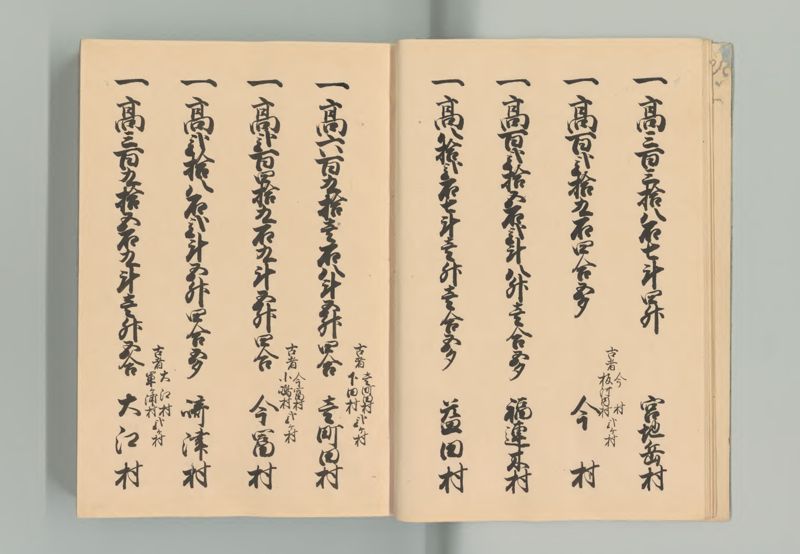 一 高三百三拾八石七斗四升 宮地岳村
一 高百弐拾九石四合五夕 今村
古者 今村 板河内村 弐ヶ村
一 高百弐拾五石弐斗八升壱合五夕 福連木村
一 高八拾弐石七斗壱升壱合五夕 益田村
一 高六百九拾壱石八斗五升四合 壱町田村
古者 壱町田村 下田村 弐ヶ村
一 高弐百四拾九石九斗五升四合 今富村
古者 今富村 小嶋村 弐ヶ村
一 高弐拾八石弐斗五升四合五夕 﨑津村
一 高三百九拾五石九斗壱升五合 大江村
古者 大江村 軍ヶ浦村 弐ヶ村